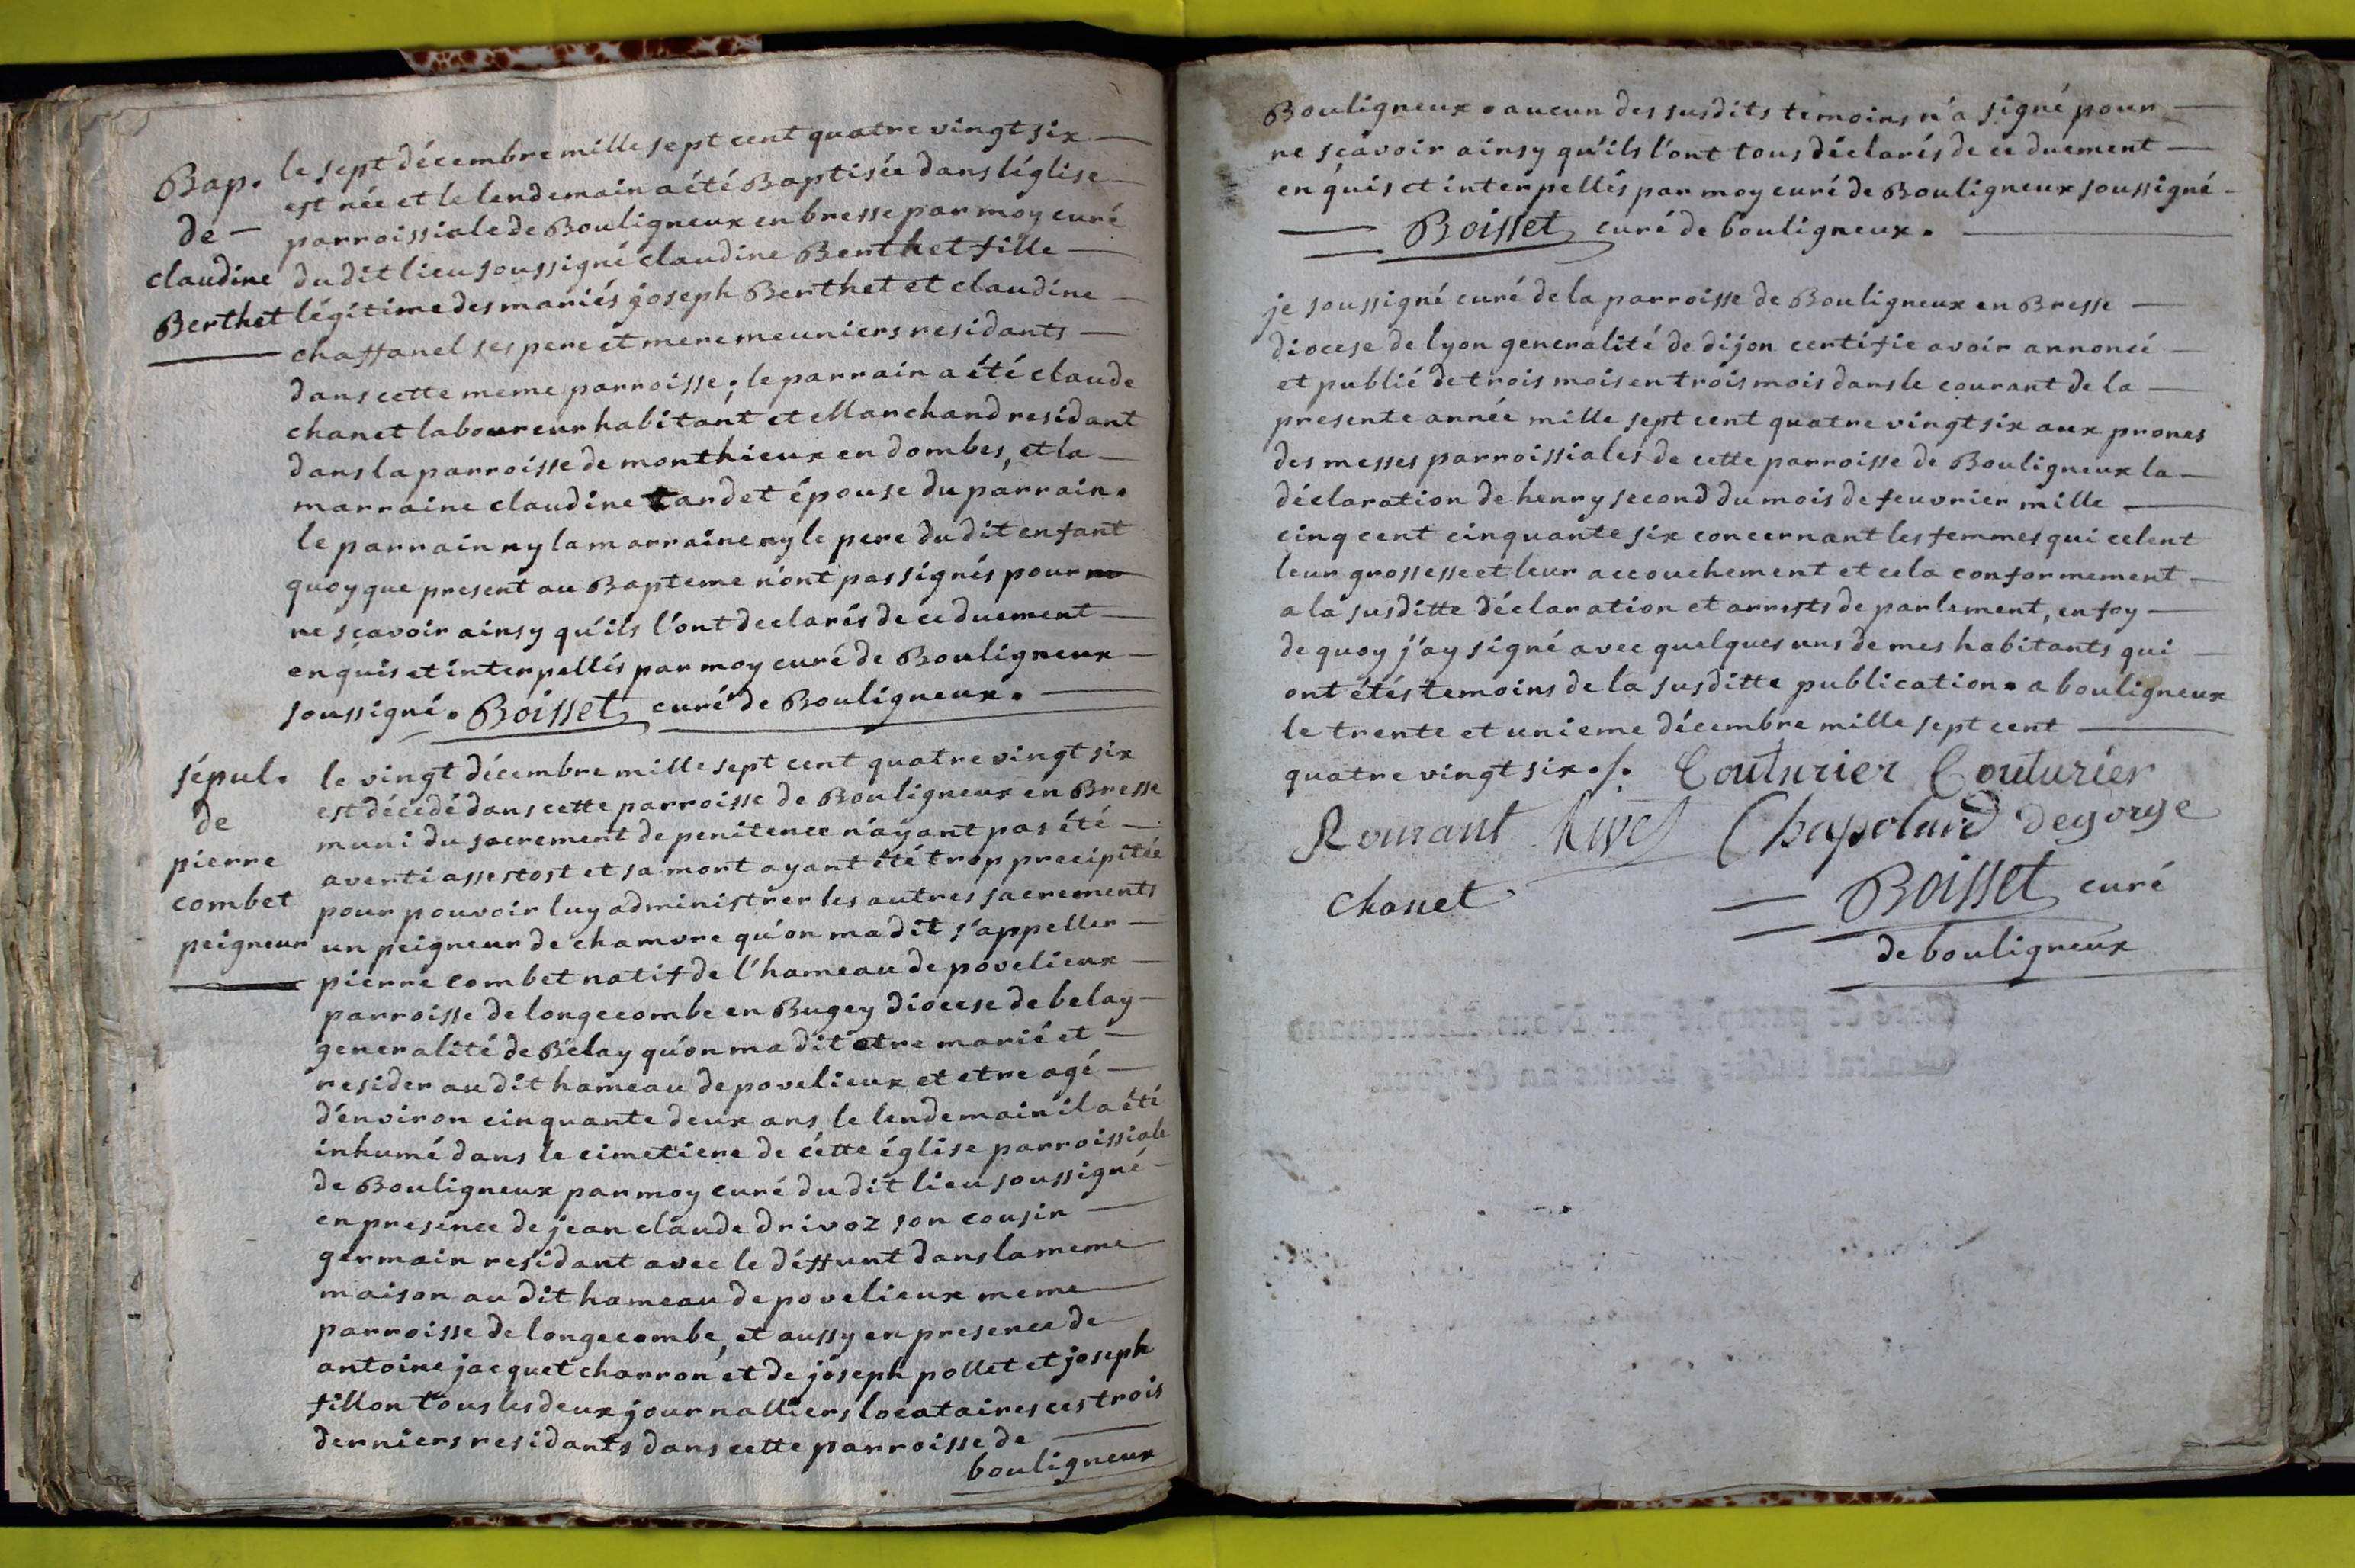 Bap.
de
claudine
Berthet
le sept décembre mille sept cent quatre vingt six
est née et le lendemain a été Baptisée dans léglise
parroissiale de Bouligneux en bresse par moy curé
du dit lieu soussigné claudine Berthet fille
légitime des mariés joseph Berthet et claudine
chaffanel ses pere et mere meuniers residants
dans cette meme parroisse; le parrain a été claude
chanet laboureur habitant et Marchand residant
dans la parroisse de monthieux en dombes, et la
marraine claudine tardet épouse du parrain.
le parrain ny la marraine ny le pere du dit enfant
quoy que present au Bapteme n'ont pas signés pour
ne sçavoir ainsy qu'ils l'ont declarés de ce duement
enquis et interpellés par moy curé de Bouligneux
soussigné. Boisset curé de Bouligneux.
sépul.
de
pierre
combet
peigneur
le vingt décembre mille sept cent quatre vingt six
est décédé dans cette parroisse de Bouligneux en Bresse
muni du sacrement de penitence n'ayant pas été
averti assestost et sa mort ayant été trop precipitée
pour pouvoir luy administrer les autres sacrements
un peigneur de chamvre qu'on ma dit s'appeller
pierre combet natif de l'hameau de povelieux
parroisse de longecombe en Bugey diocese de belay
generalité de Belay qu'on ma dit etre marié et
resider au dit hameau de povelieux et etre agé
d'environ cinquante deux ans, le lendemain il a été
inhumé dans le cimetiere de cétte église parroissiale
de Bouligneux par moy curé du dit lieu soussigné
en presence de jean claude drivoz son cousin
germain residant avec le déffunt dans la meme
maison au dit hameau de povelieux meme
parroisse de longecombe, et aussy en presence de
antoine jacquet charron et de joseph pollet et joseph
fillon tous les deux journalliers locataires ces trois
derniers residants dans cette parroisse de
bouligneux
Bouligneux. aucun des susdits temoins n'a signé pour
ne sçavoir ainsy qu'ils l'ont tous déclarés de ce duement
enquis et interpellés par moy curé de Bouligneux soussigné
Boisset curé de bouligneux.
je soussigné curé de la parroisse de Bouligneux en Bresse
diocese de lyon generalité de dijon certifie avoir annoncé
et publié de trois mois en trois mois dans le courant de la
presente année mille sept cent quatre vingt six aux prones
des messes parroissiales de cette parroisse de Bouligneux la
déclaration de henry second du mois de feuvrier mille
cinq cent cinquante six concernant les femmes qui celent
leur grossesse et leur accouchement et cela conformement
a la susditte déclaration et arrests de parlement, en foy
de quoy j'ay signé avec quelques uns de mes habitants qui
ont étés temoins de la susditte publication. a bouligneux
le trente et unieme décembre mille sept cent
quatre vingt six ./. Couturier Couturier
Rourant Chapolard degorge
chanet Boisset curé
de bouligneux